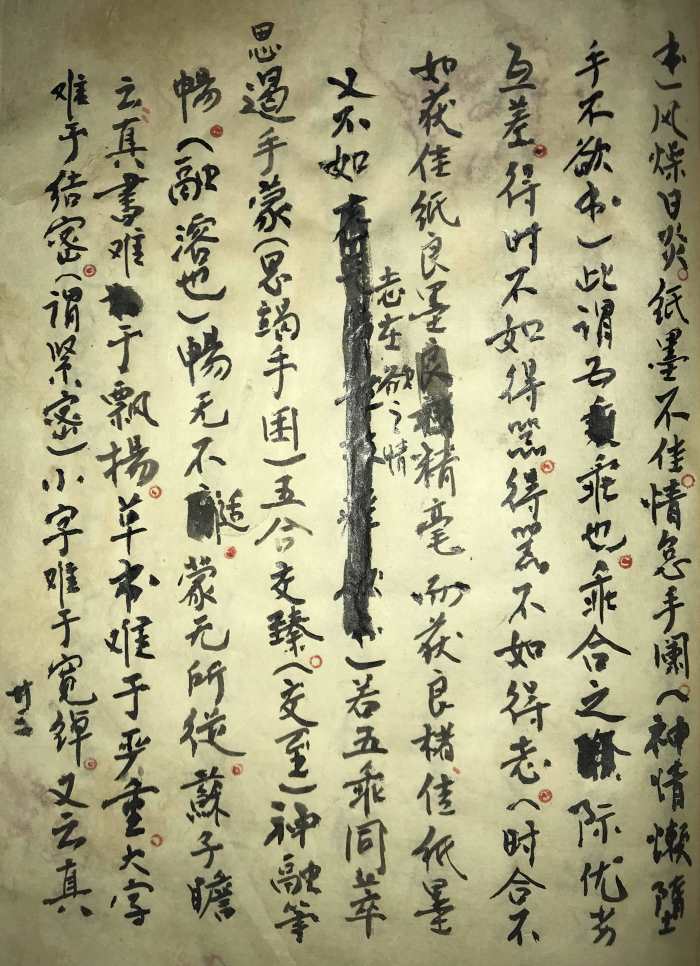 书)风燥日炎纸墨不佳情怠手阑(神情懒堕
手不欲书)此谓五乖也乖合之际优劣
互差得时不如得器得器不如得志(时合不
如获佳纸良墨精毫而获良楮佳纸墨
志在欲之情
又不如)若五乖同萃
思遏手蒙(思竭手困)五合交臻(交至)神融笔
畅(融溶也)畅无不适蒙无所从苏子瞻
云真书难于飘扬草书难于严重大字
难于结密(谓紧密)小字难于宽绰又云真
廿二